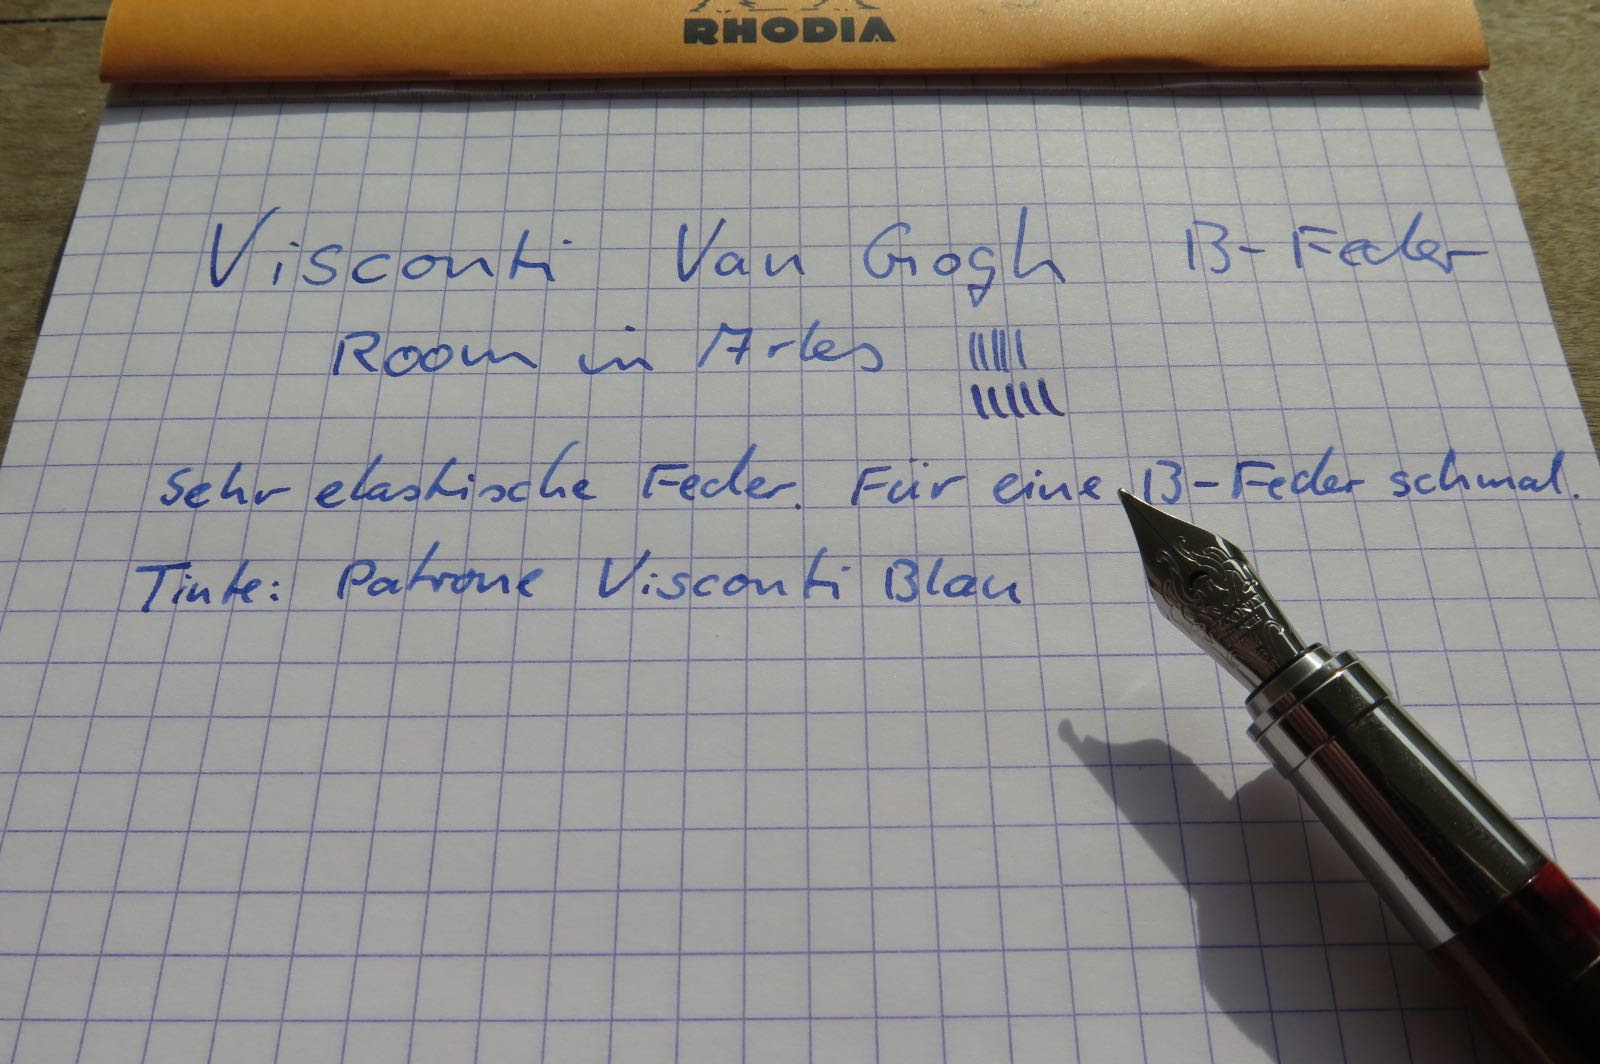 RHODIA
Visconti Van Gogh B-Feder
Room in Arles
Sehr elastische Feder. Für eine B-Feder schmal.
Tinte: Patrone Visconti Blau